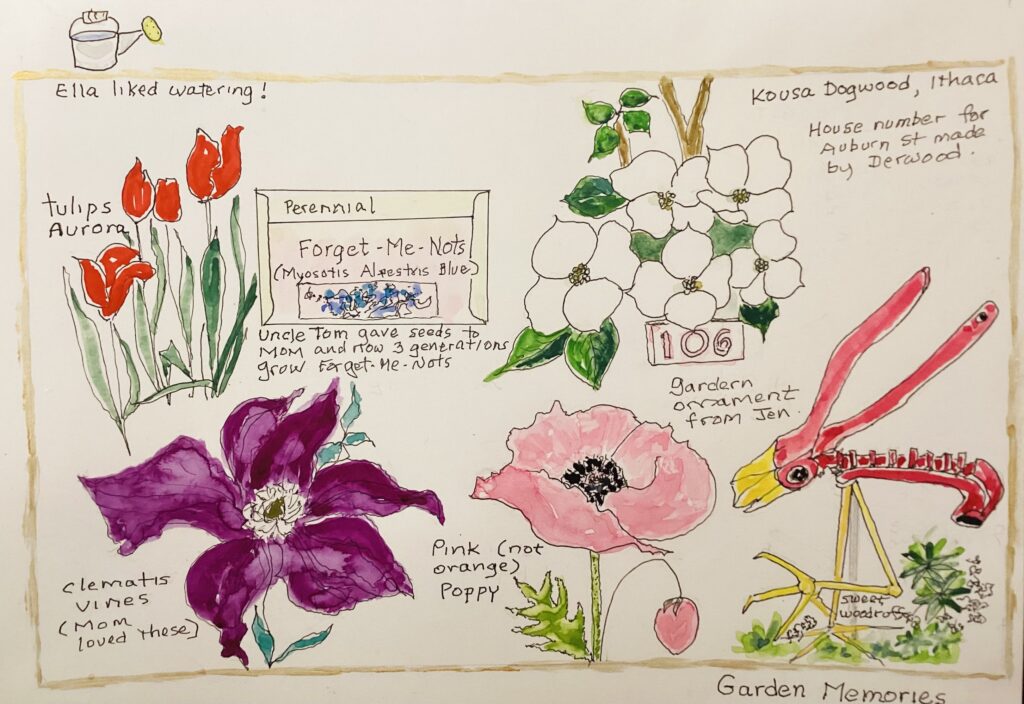 Ella liked watering!
Kousa Dogwood, Ithaca
House number for
Auburn St made
by Derwood.
tulips
Aurora
Perennial
Forget-Me-Nots
(Myosotis Alpestris Blue)
Uncle Tom gave seeds to
Mom and now 3 generations
grow Forget-Me-Nots
106
gardern
ornament
from Jen.
Clematis
vines
(Mom
loved these)
Pink (not
orange)
Poppy
sweet
woodruff
Garden Memories